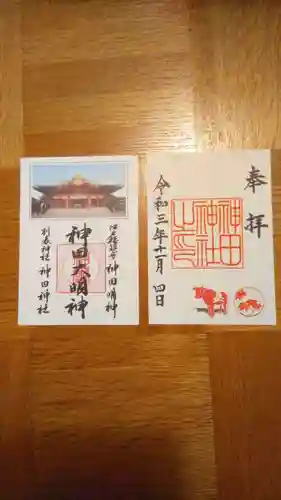 奉拝
神田神社之印
令和三年十一月四日
江戸総鎮守 神田明神
神田大明神
別表神社 神田神社